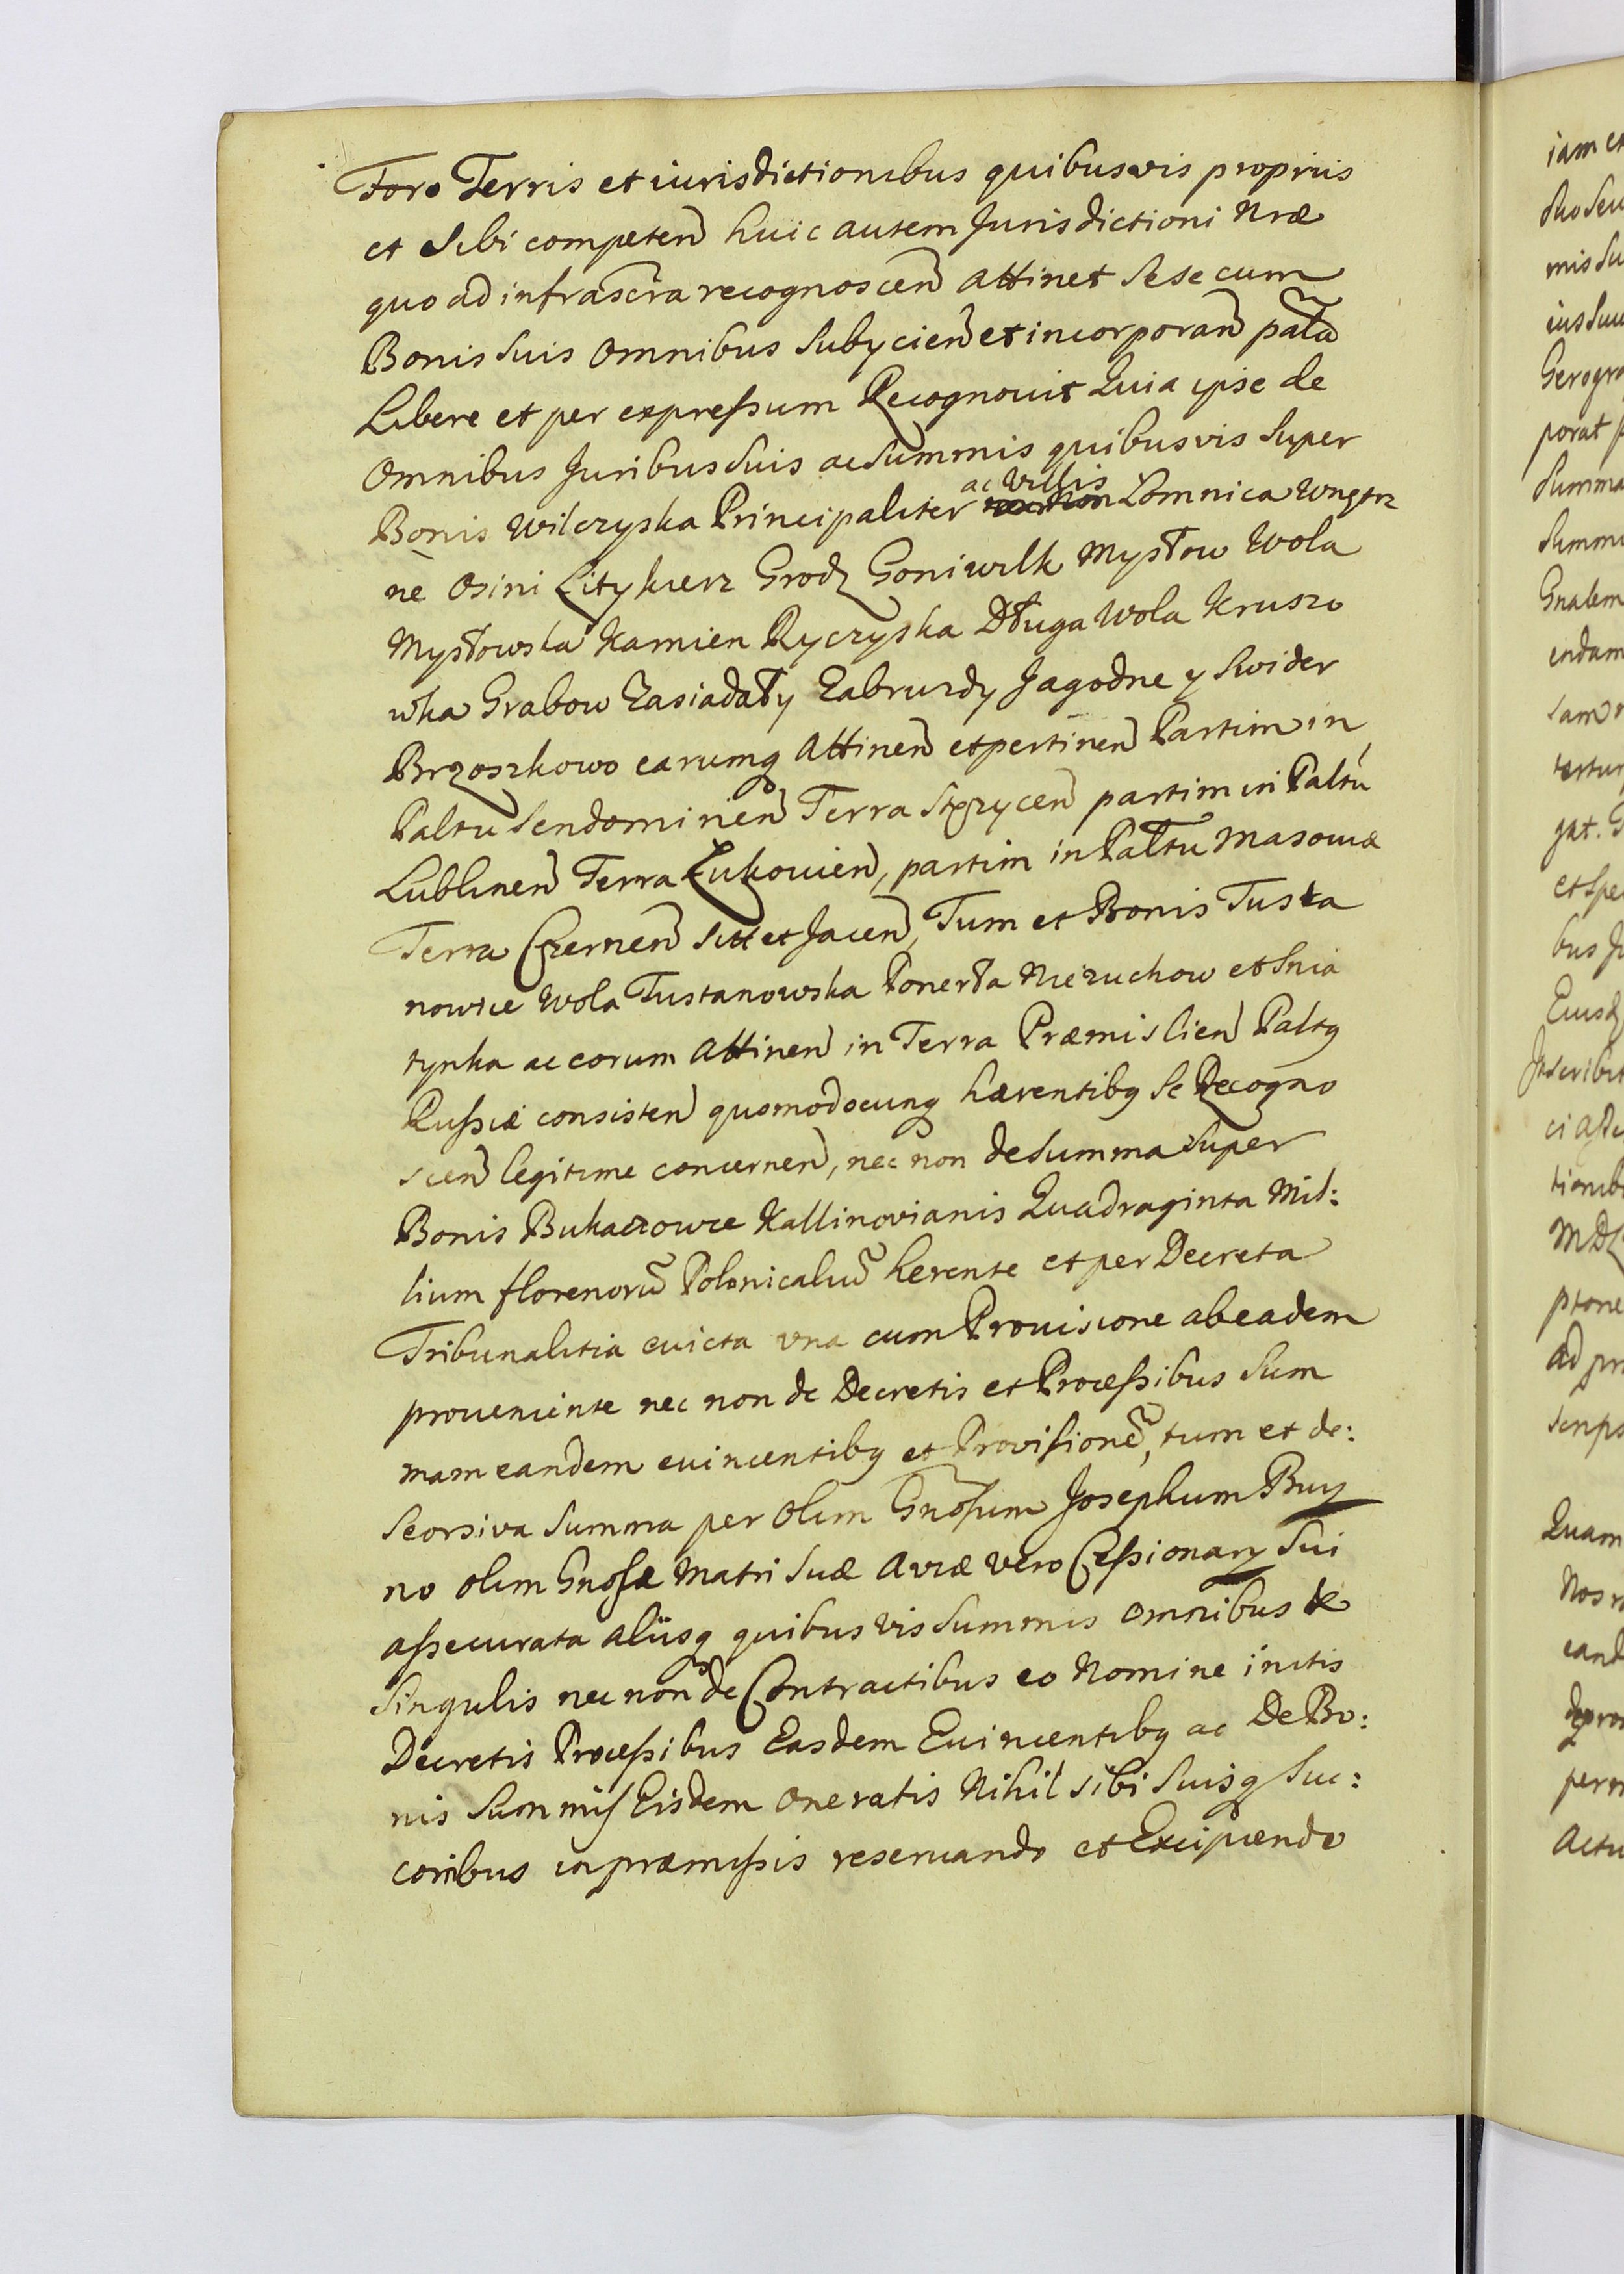 Foro Terris et iurisdictionibus quibusvis propriis
et Sibi competen̄ huic autem Jurisdictioni Nræ
quo ad infrascr̄a recognoscen̄ attinet Sese cum
Bonis suis omnibus Subycien̄ et incorporan̄ pal̄ā
Libere et per expreſsum Recognouit Quia ipse de
Omnibus Juribus Suis ac Summis quibusvis Super
Bonis Wilczyska Principaliter ac Villis Lomnica Wnętrz
ne Osini Lityksierz Grodz Goniwilk Mysłow Wola
Mysłowska Kamien Ryczyska Długa Wola Kruszo
wka Grabow Zasiadały Zabruzdy Jagodne y Swider
Brzoszkowo earumq attinen̄ et pertinen̄ Partim in
Paltu Sendomirien̄ Terra Stęzycen̄ partim in Paltu
Lublinen̄ Terra Łukouien̄, partim in Pałtu Masouiæ
Terra Czernen̄ Sitt et Jacen̄, Tum et Bonis Tusta
nowice Wola Tustanowska Ponerła Niezuchow et Snia
tynka ac eorum Attinen̄ in Terra Præmislien̄ Paltq
Ruſsiæ consisten̄ quomodocunq hærentibq se Recogno
scen̄ legitime concernen̄, nec non de Summa Super
Bonis Bukaczowce Kallinovianis Quadraginta Mil:
lium florenorū Polonicaliū herente et per Decreta
Tribunalitia euicta vna cum Prouisione ab eadem
proueniente nec non de Decretis et Proceſsibus Sum
mam eandem euincentibq et Provisionē, tum et de:
Seorsiva Summa per Olim Gnōsum Josephum Buy
no olim Gnosæ Matri Suæ Aviæ vero Ceſsionary Sui
aſsecurata alÿsq quibus vis Summis omnibus &
Singulis nec non de Contractibus eo Nomine initis
Decretis Proceſsibus Easdem Euincentibq ac De Bo:
nis Summis Eisdem oneratis Nihil sibi Suisq Suc:
coribus in præmiſsis reseruando et Excipiendo